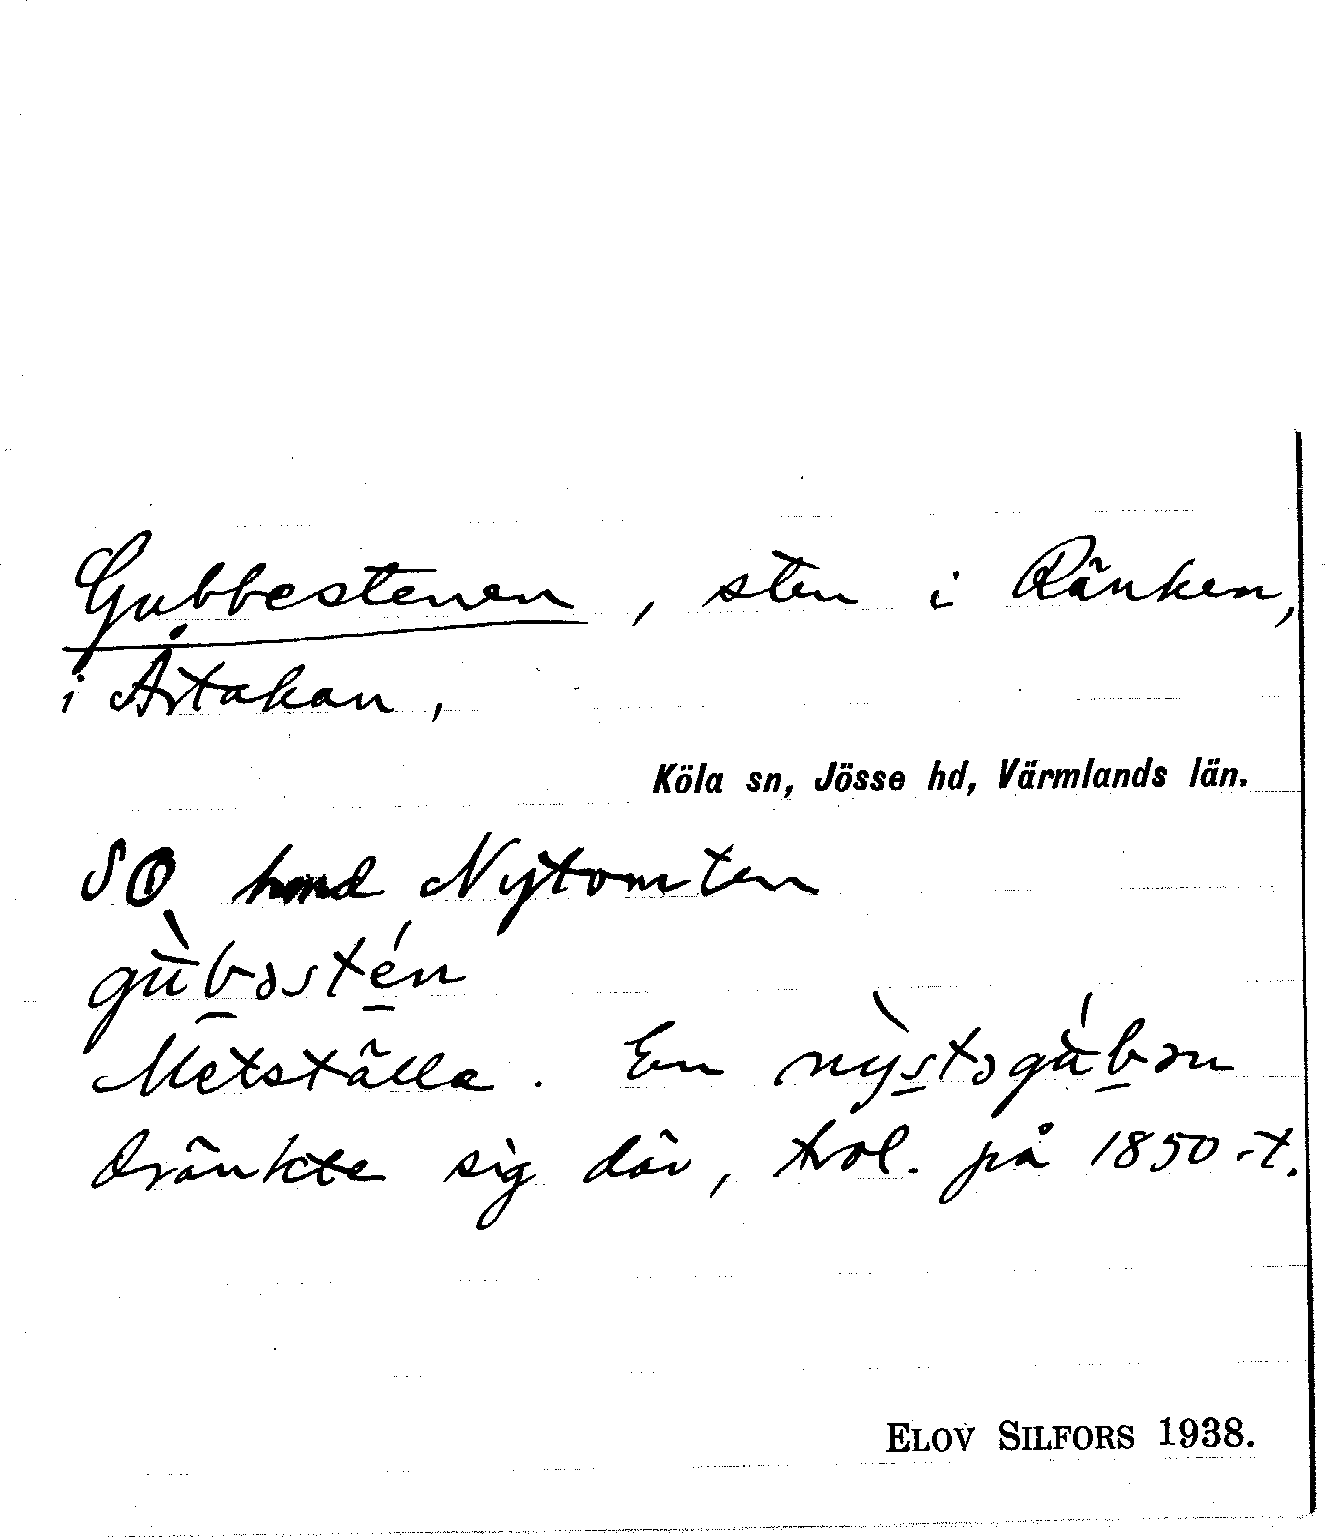 Gubbestenen, sten i Ränken,
i Årtakan,
Köla sn, Jösse hd, Värmlands län.
SO Nytomten
gùbəstén
Metställe. En nỳstəgúbən
dränkte sig där, trol. på 1850-t.
ELOV SILFORS 1938.